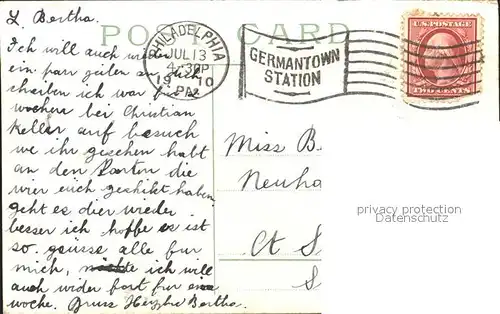 L. Bertha.
POST CARD
Ich will auch wider
ein par zeilen an dich
schreiben ich war
wochen bei Christian
Keller auf besuch
we ihr geschen habt
an den Karten die
wier euch geschikt haben
geht es dier wieder
besser ich hoffe es ist
so. grüsse alle fur
mich, ich will
auch wider fort fur eine
woche. Gruss Bertha.
PHILADELPHIA
JUL 13
430P
1910
PA
GERMANTOWN
STATION
U.S. POSTAGE
TWO CENTS
Miss B
Neuha
Ct S
S
privacy protection
Datenschutz